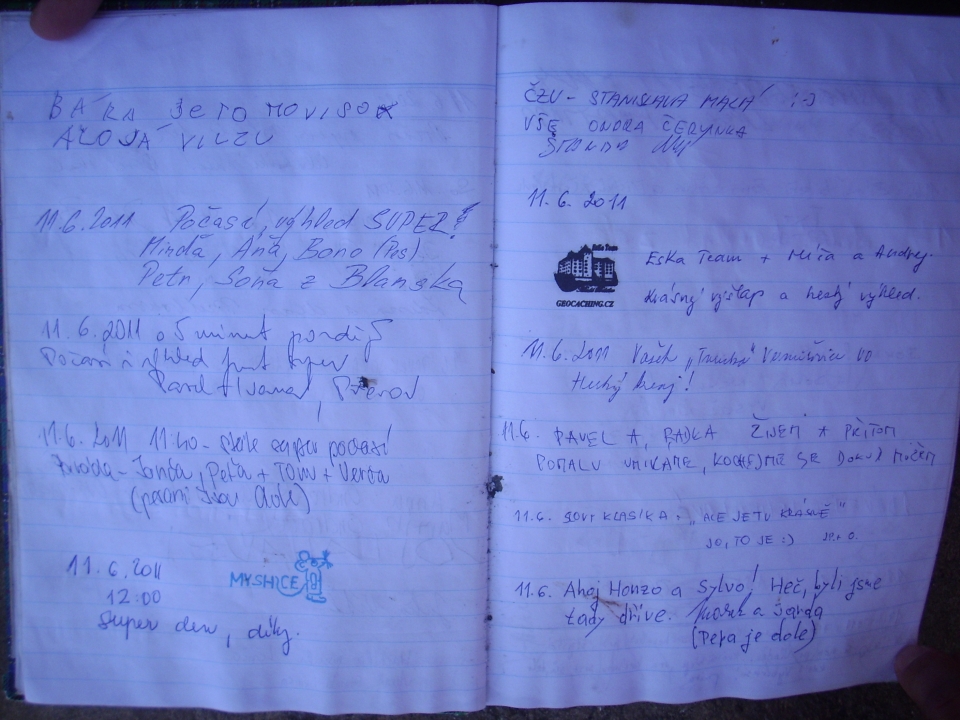 BÁRA JE TO MOVISOK
11.6.2011 Počasí, výhled SUPER!
Minda, Aňa, Bono (Pes)
Petr, Soňa z Blanska
11.6.2011 o 5 minut později
Počasí i výhled super
Pavel + Ivana, Přerov
11.6.2011 11:40 - stále super počasí
Janča, Peťa + Tom + Verča
11.6.2011
MYSHICE
12:00
Super den, díky.
ČZU - STANISLAVA MALÁ :-)
VŠE ONDRA ČERVINKA
STANDA
11.6.2011
Eska Team
GEOCACHING.CZ
Eska Team + Míša a Andrej.
Krásný výstup a hezký výhled.
11.6.2011 Vašek
Hezký
11.6. PAVEL A RADKA ŽIJEM A PŘITOM
POMALU UMÍRÁME, KOCHEJME SE DOKUD MŮŽEM
11.6. SOVY KLASIKA - „ALE JE TU KRÁSNĚ"
JO, TO JE :)
11.6. Ahoj Honzo a Sylvo! Heč, byli jsme
tady dříve. a Jarda
(Peťa je dole)